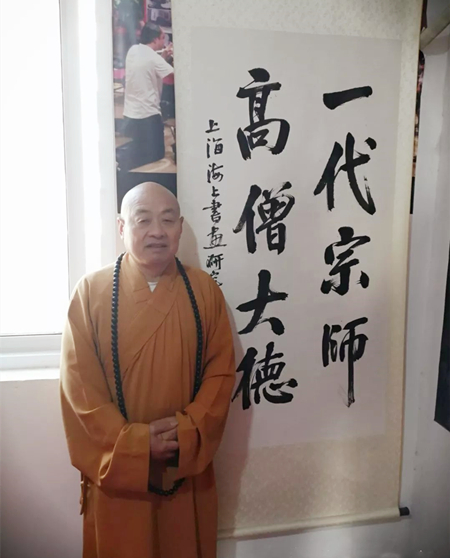 一代宗师
高僧大德
上海海上书画研究